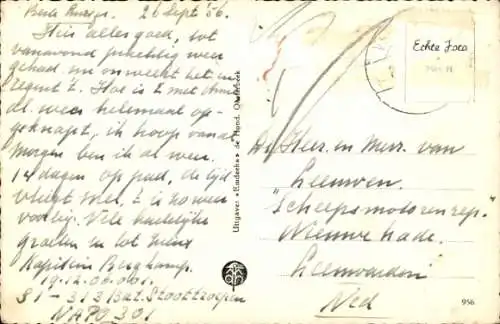 Beste Burger. 26 Sept 56.
Hier alles goed, tot
vanavond prachtig weer
gehad nu onweert het en
regent 't. Hoe is 't met
al weer helemaal op-
geknapt, ik hoop van al
Morgen ben ik al weer
14 dagen op pad, de tijd
vliegt snel, 't is zo weer
voorbij. Vele hartelijke
groeten en tot ziens
Kapitein Berghamp.
19.12.06.001.
S1-313 Bat. Stoottroepen
NAPO 301
Uitgave: «Emdeeha» de Hond.
Echte Foto
De Heer en Mevr. van
Leeuwen.
"Scheepsmotorenrep."
Nieuwe kade.
Leeuwarden
Ned
956